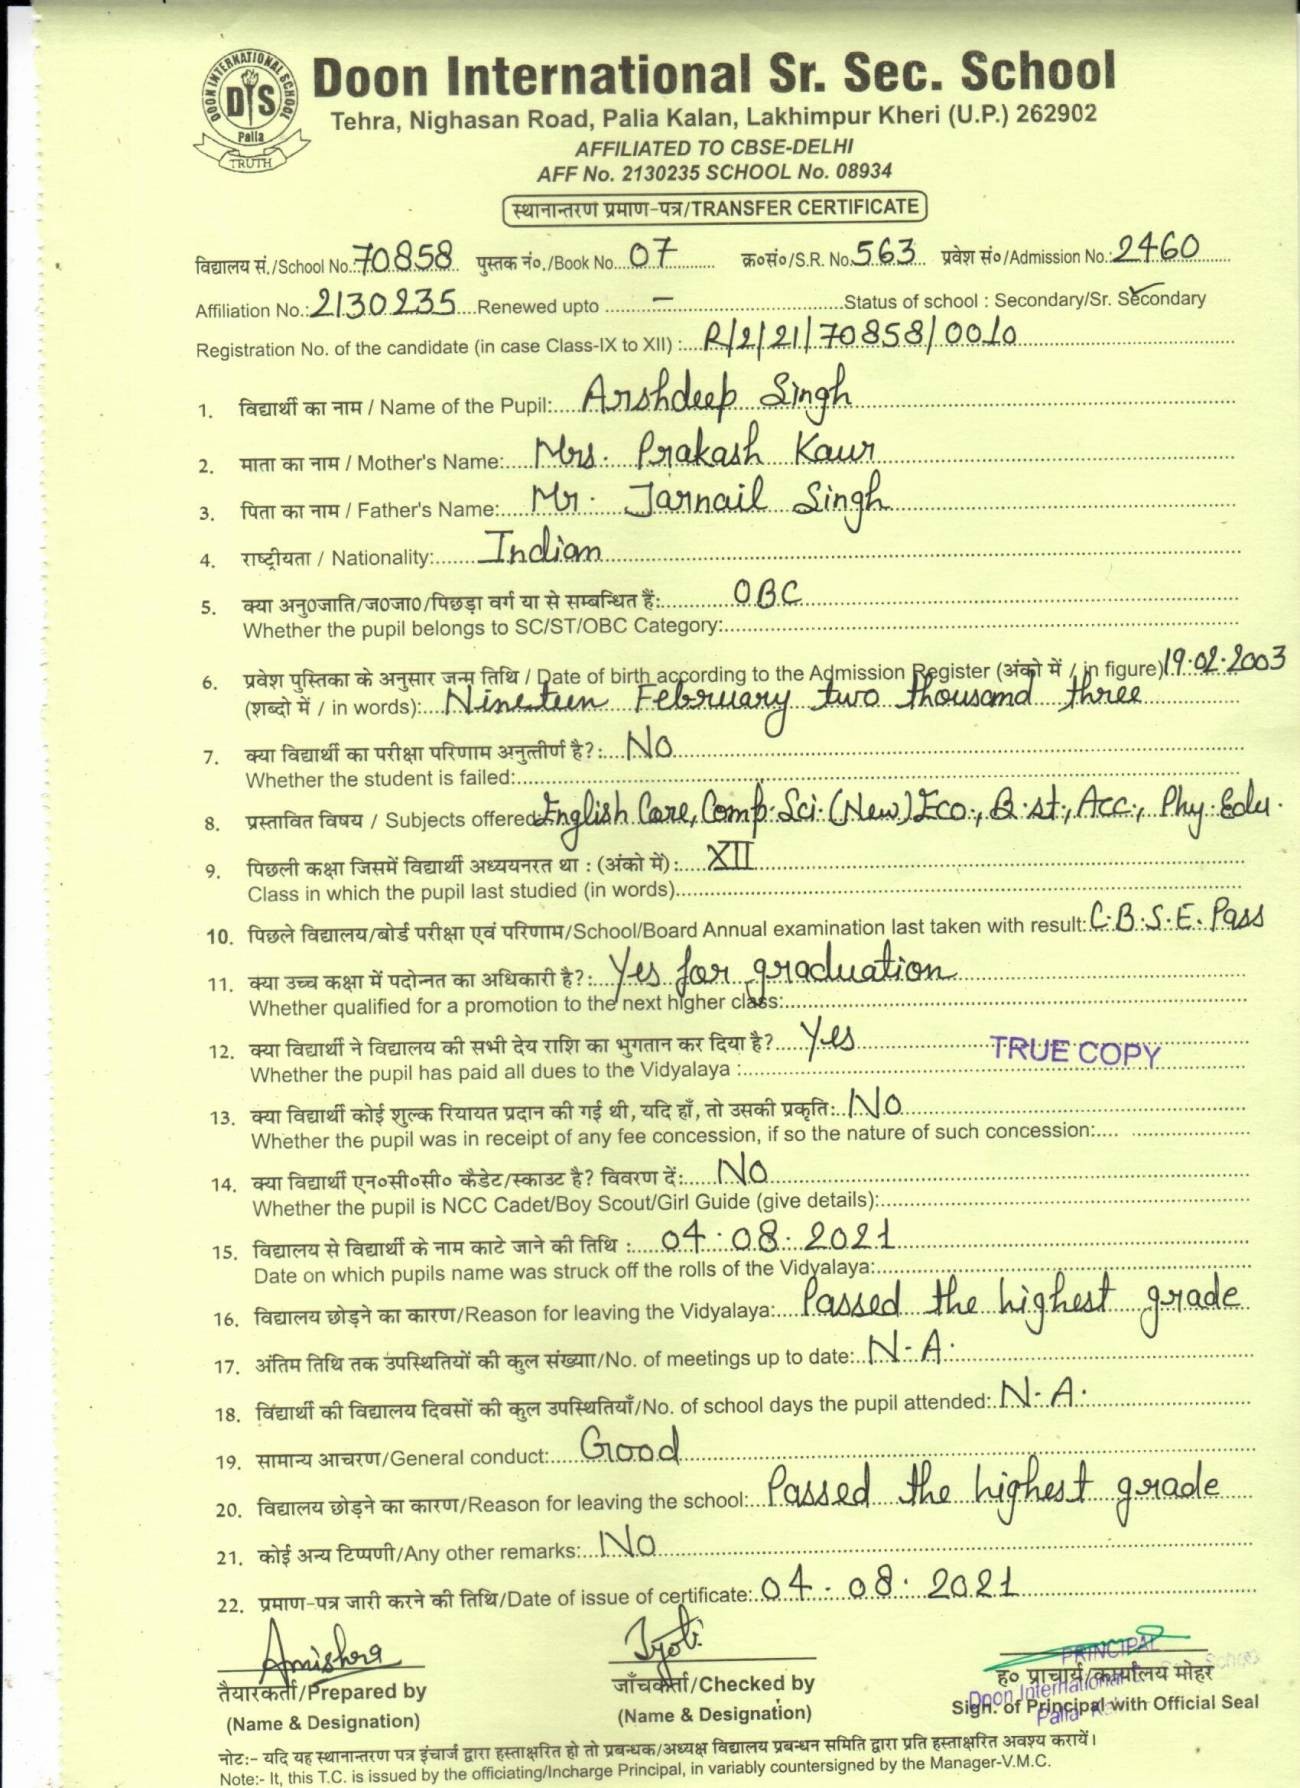 DOON INTERNATIONAL SCHOOL
DIS
Palia
TRUTH
Doon International Sr. Sec. School
Tehra, Nighasan Road, Palia Kalan, Lakhimpur Kheri (U.P.) 262902
AFFILIATED TO CBSE-DELHI
AFF No. 2130235 SCHOOL No. 08934
स्थानान्तरण प्रमाण-पत्र/TRANSFER CERTIFICATE
विद्यालय सं./School No. 70858 पुस्तक नं०./Book No. 07 क्र०सं०/S.R. No. 563 प्रवेश सं०/Admission No.: 2460
Affiliation No.: 2130235 Renewed upto – Status of school : Secondary/Sr. Secondary
Registration No. of the candidate (in case Class-IX to XII) : R/2/21/70858/0010
1. विद्यार्थी का नाम / Name of the Pupil: Arshdeep Singh
2. माता का नाम / Mother's Name: Mrs. Prakash Kaur
3. पिता का नाम / Father's Name: Mr. Jarnail Singh
4. राष्ट्रीयता / Nationality: Indian
5. क्या अनु0जाति/ज0जा0/पिछड़ा वर्ग या से सम्बन्धित हैं: OBC
Whether the pupil belongs to SC/ST/OBC Category:
6. प्रवेश पुस्तिका के अनुसार जन्म तिथि / Date of birth according to the Admission Register (अंको में / in figure) 19.02.2003
(शब्दो में / in words): Nineteen February two thousand three
7. क्या विद्यार्थी का परीक्षा परिणाम अनुत्तीर्ण है?: No
Whether the student is failed:
8. प्रस्तावित विषय / Subjects offered: English Core, Comp. Sci. (New) Eco., B.st., Acc., Phy. Edu.
9. पिछली कक्षा जिसमें विद्यार्थी अध्ययनरत था : (अंको में): XII
Class in which the pupil last studied (in words)
10. पिछले विद्यालय/बोर्ड परीक्षा एवं परिणाम/School/Board Annual examination last taken with result: C.B.S.E. Pass
11. क्या उच्च कक्षा में पदोन्नत का अधिकारी है?: Yes for graduation
Whether qualified for a promotion to the next higher class:
12. क्या विद्यार्थी ने विद्यालय की सभी देय राशि का भुगतान कर दिया है? Yes
TRUE COPY
Whether the pupil has paid all dues to the Vidyalaya :
13. क्या विद्यार्थी कोई शुल्क रियायत प्रदान की गई थी, यदि हाँ, तो उसकी प्रकृति: No
Whether the pupil was in receipt of any fee concession, if so the nature of such concession:
14. क्या विद्यार्थी एन०सी०सी० कैडेट/स्काउट है? विवरण दें: No
Whether the pupil is NCC Cadet/Boy Scout/Girl Guide (give details):
15. विद्यालय से विद्यार्थी के नाम काटे जाने की तिथि : 04.08.2021
Date on which pupils name was struck off the rolls of the Vidyalaya:
16. विद्यालय छोड़ने का कारण/Reason for leaving the Vidyalaya: Passed the highest grade
17. अंतिम तिथि तक उपस्थितियों की कुल संख्या/No. of meetings up to date: N.A.
18. विद्यार्थी की विद्यालय दिवसों की कुल उपस्थितियाँ/No. of school days the pupil attended: N.A.
19. सामान्य आचरण/General conduct: Good
20. विद्यालय छोड़ने का कारण/Reason for leaving the school: Passed the highest grade
21. कोई अन्य टिप्पणी/Any other remarks: No
22. प्रमाण-पत्र जारी करने की तिथि/Date of issue of certificate: 04.08.2021
Amishra Jyoti
PRINCIPAL
तैयारकर्ता/Prepared by जाँचकर्ता/Checked by ह० प्राचार्य/कार्यालय मोहर
Doon International
(Name & Designation) (Name & Designation) Sign. of Principal with Official Seal
Palia
नोट:- यदि यह स्थानान्तरण पत्र इंचार्ज द्वारा हस्ताक्षरित हो तो प्रबन्धक/अध्यक्ष विद्यालय प्रबन्धन समिति द्वारा प्रति हस्ताक्षरित अवश्य करायें।
Note:- It, this T.C. is issued by the officiating/Incharge Principal, in variably countersigned by the Manager-V.M.C.